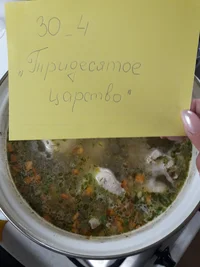 30_4
„Тридесатое
царство"